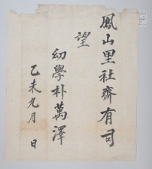 鳳山里社齊有司
望
幼學朴萬澤
乙未元月 日